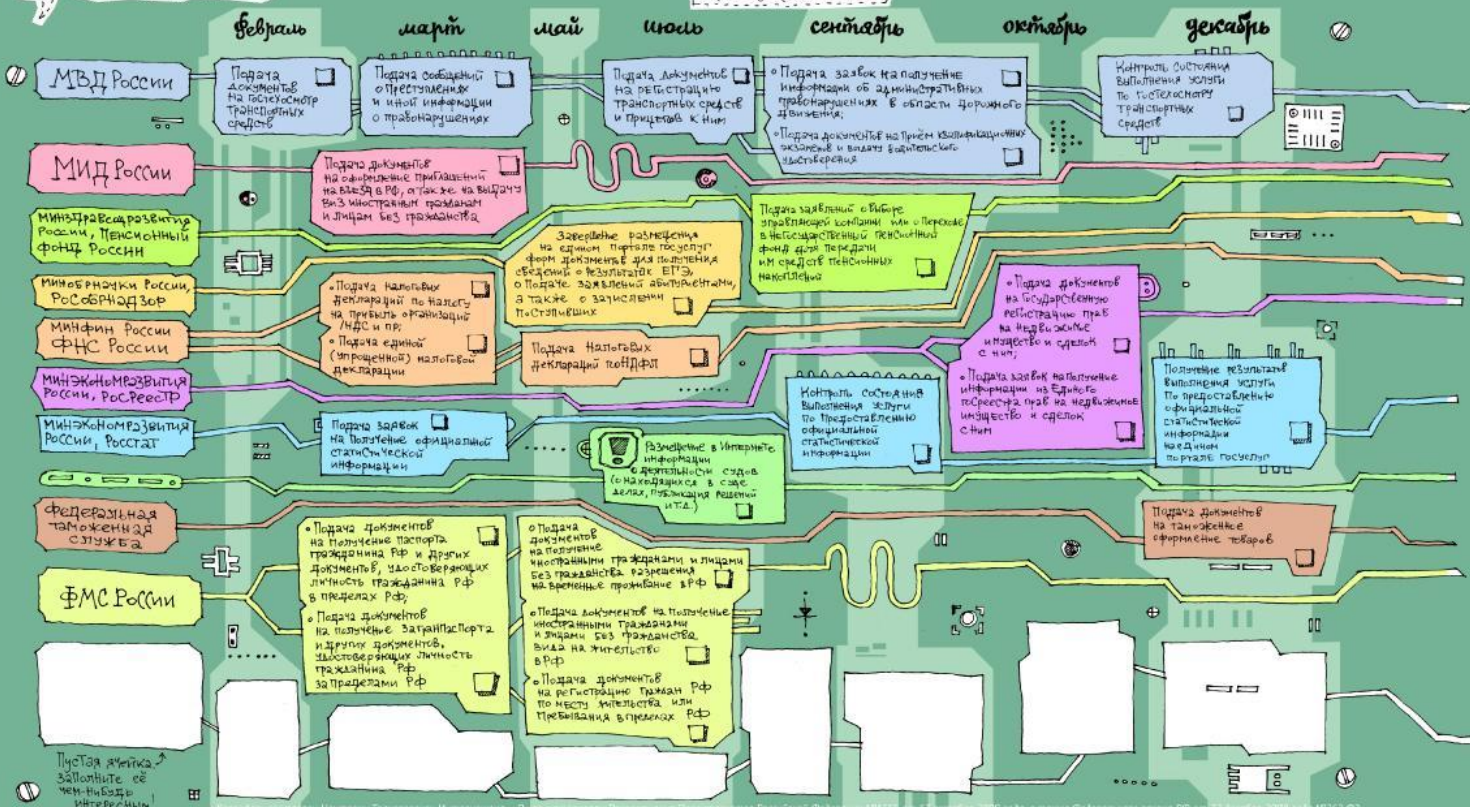 февраль
март
май
июль
сентябрь
октябрь
декабрь
МВД России
Подача
документов
на гостехосмотр
транспортных
средств
Подача сообщений
о преступлениях
и иной информации
о правонарушениях
Подача документов
на регистрацию
транспортных средств
и прицепов к ним
• Подача заявок на получение
информации об административных
правонарушениях в области дорожного
движения;
• Подача документов на приём квалификационных
экзаменов и выдачу водительского
удостоверения
Контроль состояния
выполнения услуги
по гостехосмотру
транспортных
средств
МИД России
Подача документов
на оформление приглашений
на въезд в РФ, а также на выдачу
виз иностранным гражданам
и лицам без гражданства
Минздравсоцразвития
России, Пенсионный
фонд России
Подача заявлений о выборе
управляющей компании или о переходе
в негосударственный пенсионный
фонд для передачи
им средств пенсионных
накоплений
Минобрнауки России,
Рособрнадзор
Завершение размещения
на едином портале госуслуг
форм документов для получения
сведений о результатах ЕГЭ,
о подаче заявлений абитуриентами,
а также о зачислении
поступивших
Минфин России
ФНС России
• Подача налоговых
деклараций по налогу
на прибыль организаций
/НДС и пр;
• Подача единой
(упрощенной) налоговой
декларации
Подача налоговых
деклараций по НДФЛ
Минэкономразвития
России, Росреестр
• Подача документов
на государственную
регистрацию прав
на недвижимое
имущество и сделок
с ним;
• Подача заявок на получение
информации из Единого
госреестра прав на недвижимое
имущество и сделок
с ним
Минэкономразвития
России, Росстат
Подача заявок
на получение официальной
статистической
информации
Контроль состояния
выполнения услуги
по предоставлению
официальной
статистической
информации
Получение результатов
выполнения услуги
по предоставлению
официальной
статистической
информации
на едином
портале госуслуг
Размещение в Интернете
информации
о деятельности судов
(о находящихся в суде
делах, публикация решений
и т.д.)
Федеральная
таможенная
служба
Подача документов
на таможенное
оформление товаров
ФМС России
• Подача документов
на получение паспорта
гражданина РФ и других
документов, удостоверяющих
личность гражданина РФ
в пределах РФ;
• Подача документов
на получение загранпаспорта
и других документов,
удостоверяющих личность
гражданина РФ
за пределами РФ
• Подача
документов
на получение
иностранными гражданами и лицами
без гражданства разрешения
на временное проживание в РФ
• Подача документов на получение
иностранными гражданами
и лицами без гражданства
вида на жительство
в РФ
• Подача документов
на регистрацию граждан РФ
по месту жительства или
пребывания в пределах РФ
Пустая ячейка
заполните её
чем-нибудь
интересным!